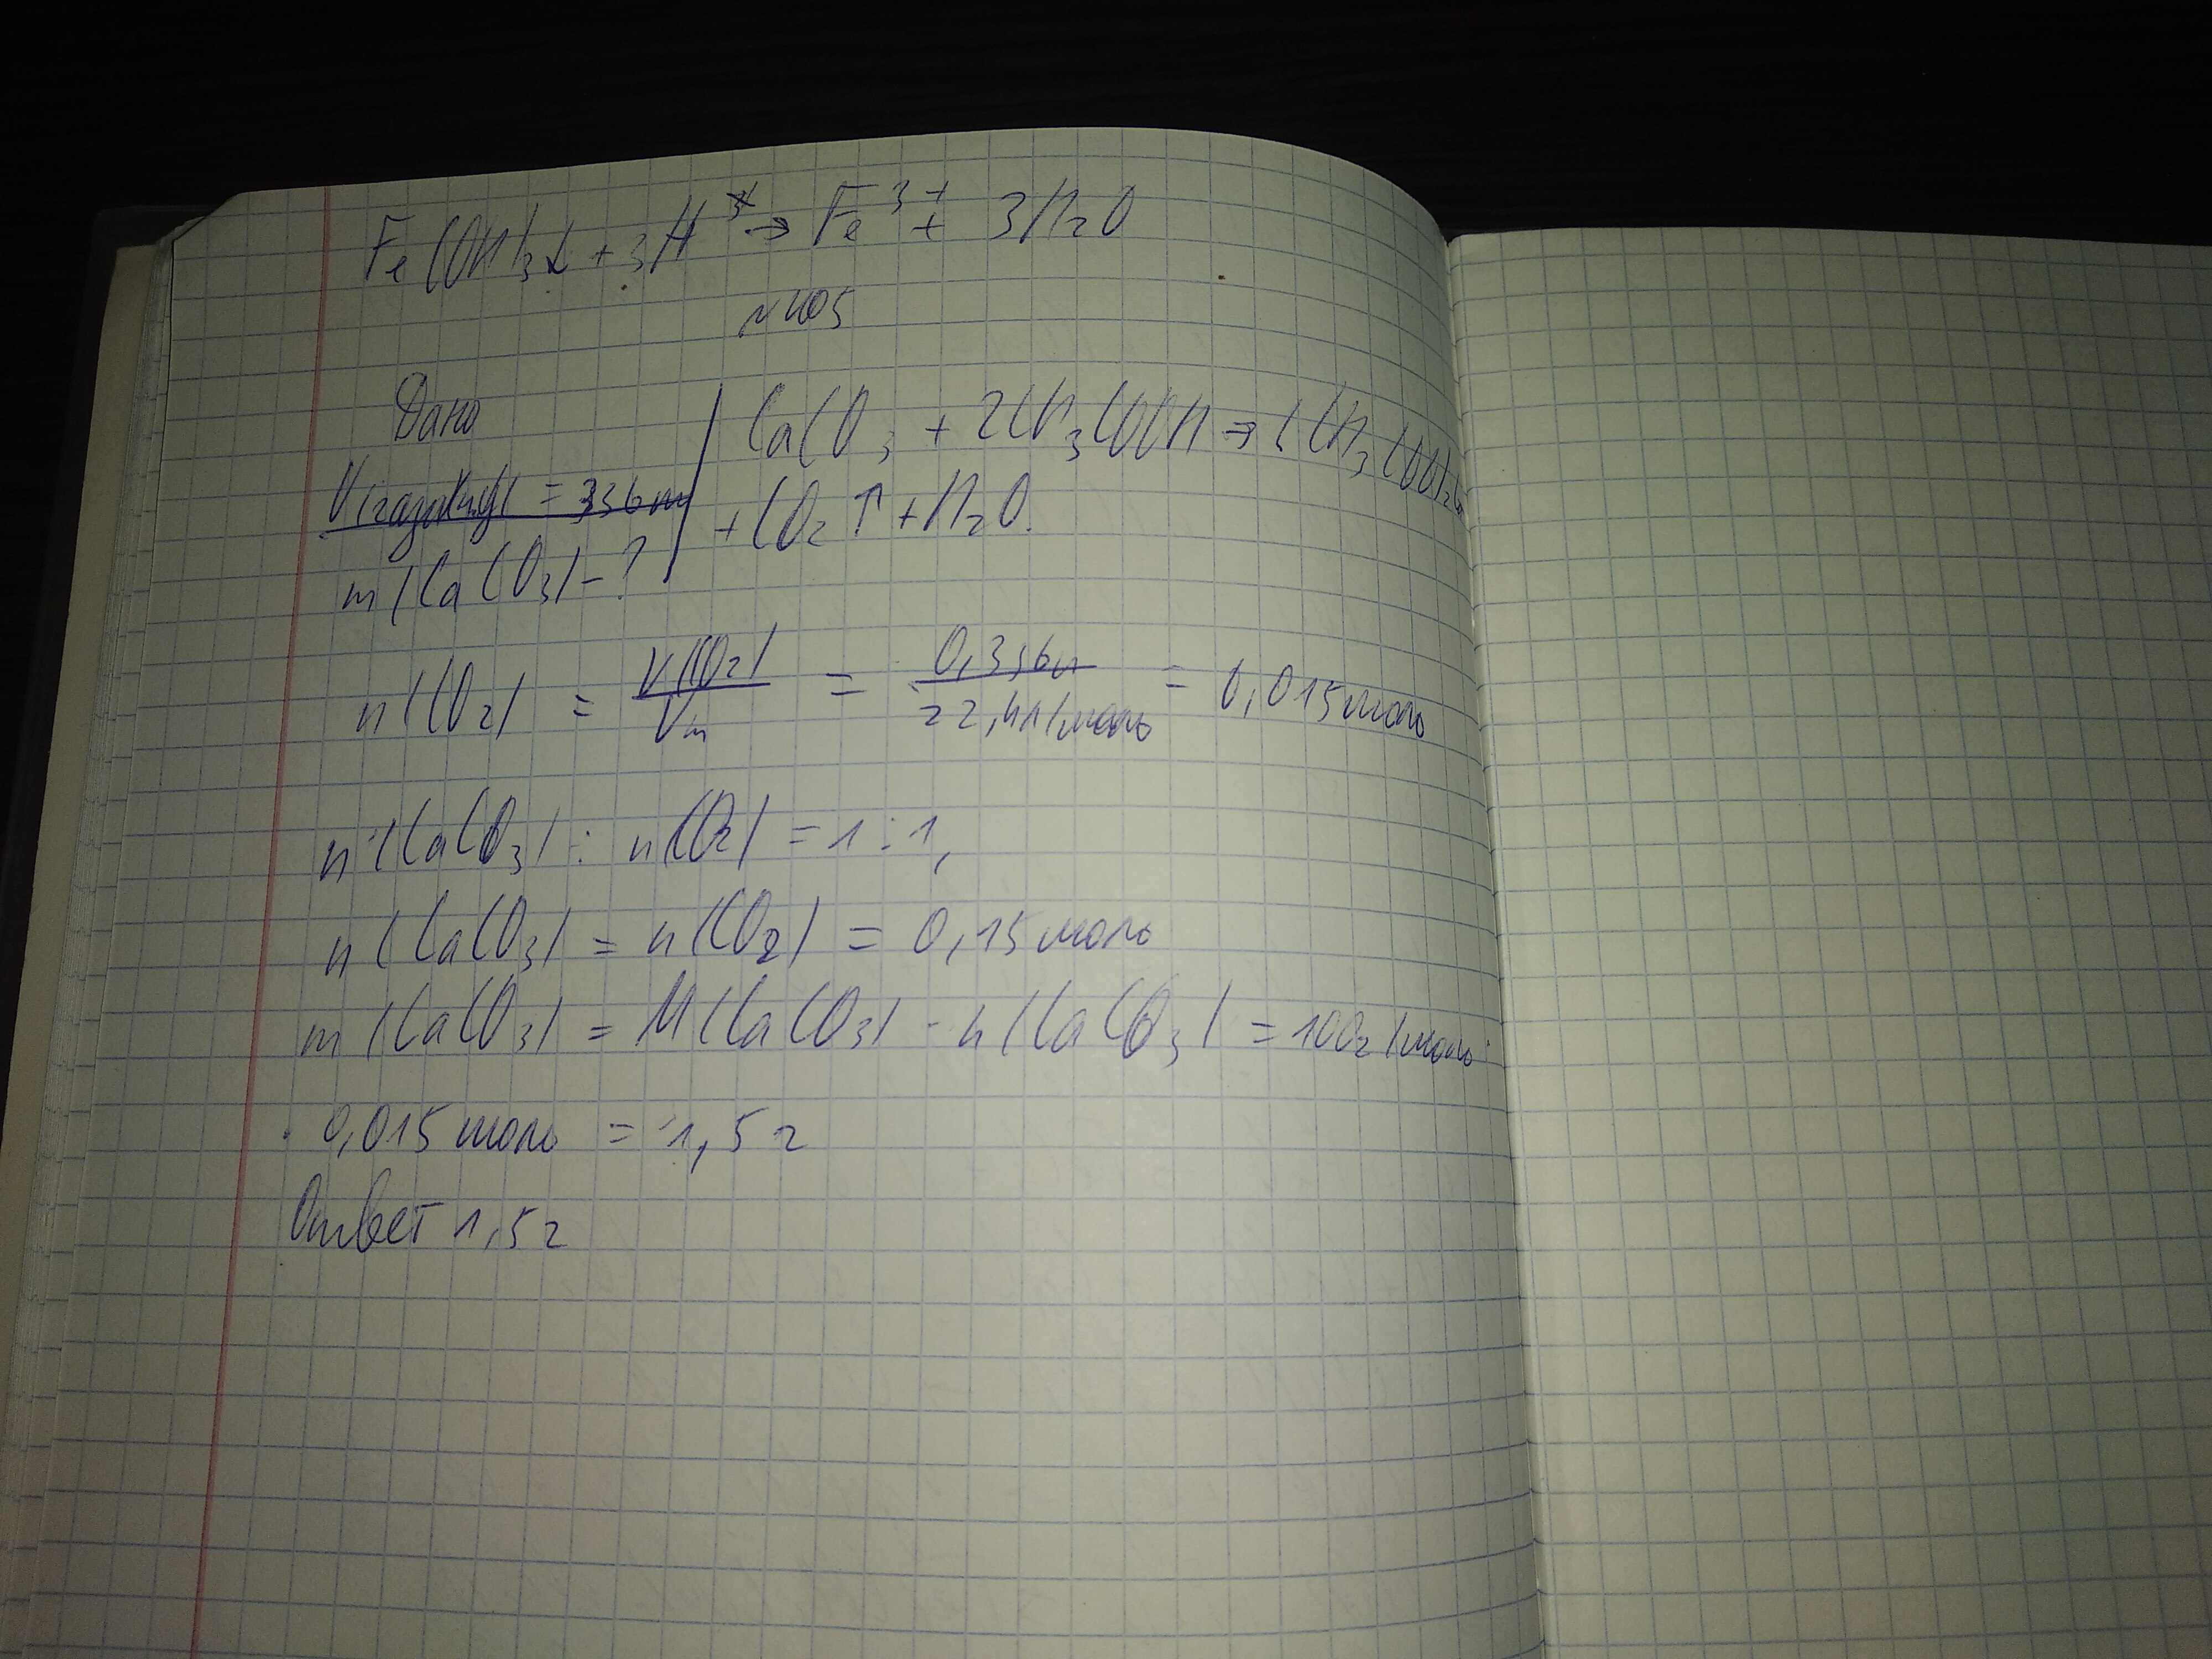 Fe(OH)3↓ + 3H⁺ → Fe³⁺ + 3H2O
№405
Дано
V(газа)(н.у.) = 336 мл
m(CaCO3) - ?
CaCO3 + 2CH3COOH → (CH3COO)2Ca
+ CO2 ↑ + H2O.
n(CO2) = V(CO2)/Vm = 0,336л/22,4л/моль = 0,015моль
n(CaCO3) : n(CO2) = 1 : 1,
n(CaCO3) = n(CO2) = 0,15моль
m(CaCO3) = M(CaCO3) · n(CaCO3) = 100г/моль ·
· 0,015 моль = 1,5 г
Ответ 1,5 г